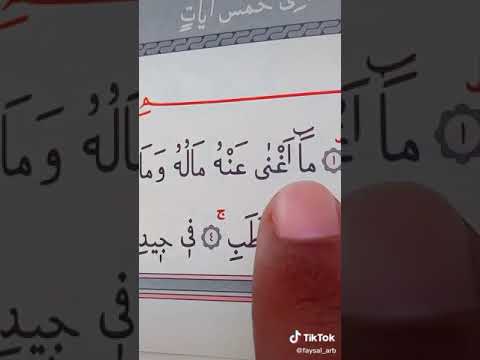 خَمْسُ اٰيَاتٍ
١ مَٓا اَغْنٰى عَنْهُ مَالُهُ وَمَا
ج ٤ فٖى جٖيدِ
TikTok
@faysal_arb